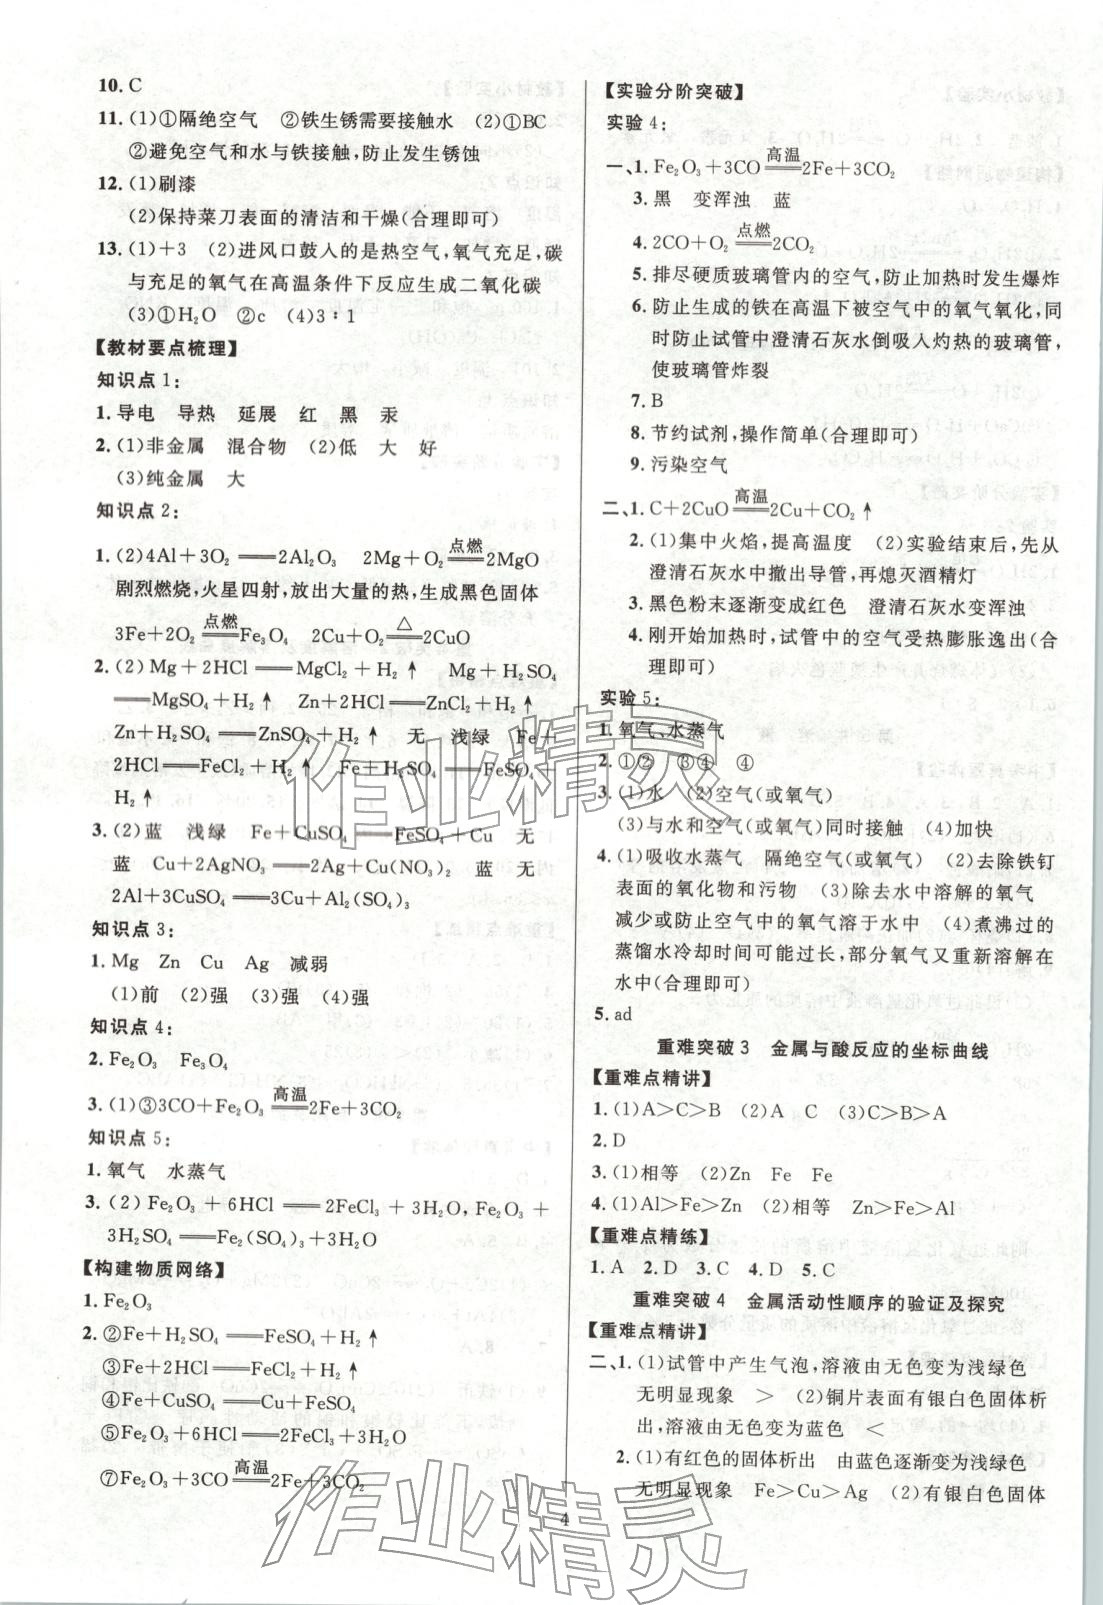 10. C
11. (1)①隔绝空气　②铁生锈需要接触水　(2)①BC
②避免空气和水与铁接触,防止发生锈蚀
12. (1)刷漆
(2)保持菜刀表面的清洁和干燥(合理即可)
13. (1)+3　(2)进风口鼓入的是热空气,氧气充足,碳
与充足的氧气在高温条件下反应生成二氧化碳
(3)①H₂O　②c　(4)3∶1
【教材要点梳理】
知识点1:
1. 导电　导热　延展　红　黑　汞
2. (1)非金属　混合物　(2)低　大　好
(3)纯金属　大
知识点2:
1. (2)4Al+3O₂══2Al₂O₃　2Mg+O₂ 点燃══ 2MgO
剧烈燃烧,火星四射,放出大量的热,生成黑色固体
3Fe+2O₂ 点燃══ Fe₃O₄　2Cu+O₂ △══ 2CuO
2. (2) Mg+2HCl══MgCl₂+H₂↑　Mg+H₂SO₄
══MgSO₄+H₂↑　Zn+2HCl══ZnCl₂+H₂↑
Zn+H₂SO₄══ZnSO₄+H₂↑　无　浅绿　Fe+
2HCl══FeCl₂+H₂↑　Fe+H₂SO₄══FeSO₄+
H₂↑
3. (2)蓝　浅绿　Fe+CuSO₄══FeSO₄+Cu　无
蓝　Cu+2AgNO₃══2Ag+Cu(NO₃)₂　蓝　无
2Al+3CuSO₄══3Cu+Al₂(SO₄)₃
知识点3:
1. Mg　Zn　Cu　Ag　减弱
(1)前　(2)强　(3)强　(4)强
知识点4:
2. Fe₂O₃　Fe₃O₄
3. (1)③3CO+Fe₂O₃ 高温══ 2Fe+3CO₂
知识点5:
1. 氧气　水蒸气
3. (2) Fe₂O₃+6HCl══2FeCl₃+3H₂O, Fe₂O₃+
3H₂SO₄══Fe₂(SO₄)₃+3H₂O
【构建物质网络】
1. Fe₂O₃
2. ②Fe+H₂SO₄══FeSO₄+H₂↑
③Fe+2HCl══FeCl₂+H₂↑
④Fe+CuSO₄══Cu+FeSO₄
⑤Fe₂O₃+6HCl══2FeCl₃+3H₂O
⑦Fe₂O₃+3CO 高温══ 2Fe+3CO₂
【实验分阶突破】
实验4:
一、1. Fe₂O₃+3CO 高温══ 2Fe+3CO₂
3. 黑　变浑浊　蓝
4. 2CO+O₂ 点燃══ 2CO₂
5. 排尽硬质玻璃管内的空气,防止加热时发生爆炸
6. 防止生成的铁在高温下被空气中的氧气氧化,同
时防止试管中澄清石灰水倒吸入灼热的玻璃管,
使玻璃管炸裂
7. B
8. 节约试剂,操作简单(合理即可)
9. 污染空气
二、1. C+2CuO 高温══ 2Cu+CO₂↑
2. (1)集中火焰,提高温度　(2)实验结束后,先从
澄清石灰水中撤出导管,再熄灭酒精灯
3. 黑色粉末逐渐变成红色　澄清石灰水变浑浊
4. 刚开始加热时,试管中的空气受热膨胀逸出(合
理即可)
实验5:
1. 氧气、水蒸气
2. ①②　③④　④
3. (1)水　(2)空气(或氧气)
(3)与水和空气(或氧气)同时接触　(4)加快
4. (1)吸收水蒸气　隔绝空气(或氧气)　(2)去除铁钉
表面的氧化物和污物　(3)除去水中溶解的氧气
减少或防止空气中的氧气溶于水中　(4)煮沸过的
蒸馏水冷却时间可能过长,部分氧气又重新溶解在
水中(合理即可)
5. ad
重难突破3　金属与酸反应的坐标曲线
【重难点精讲】
1. (1)A>C>B　(2)A　C　(3)C>B>A
2. D
3. (1)相等　(2)Zn　Fe　Fe
4. (1)Al>Fe>Zn　(2)相等　Zn>Fe>Al
【重难点精练】
1. A　2. D　3. C　4. D　5. C
重难突破4　金属活动性顺序的验证及探究
【重难点精讲】
二、1. (1)试管中产生气泡,溶液由无色变为浅绿色
无明显现象　>　(2)铜片表面有银白色固体析
出,溶液由无色变为蓝色　<
2. (1)有红色的固体析出　由蓝色逐渐变为浅绿色
无明显现象　Fe>Cu>Ag　(2)有银白色固体
4
作业精灵
作业精灵